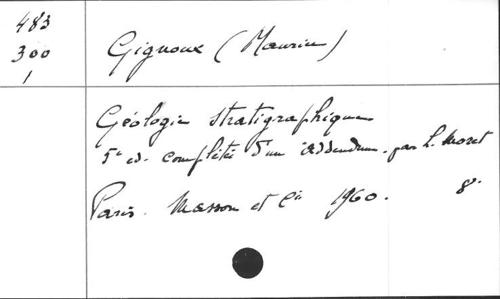 483
300
1
Gignoux (Maurice)
Géologie stratigraphique
5e ed. complétée d'un addendum par L. Moret
Paris. Masson et Cie 1960. 8°